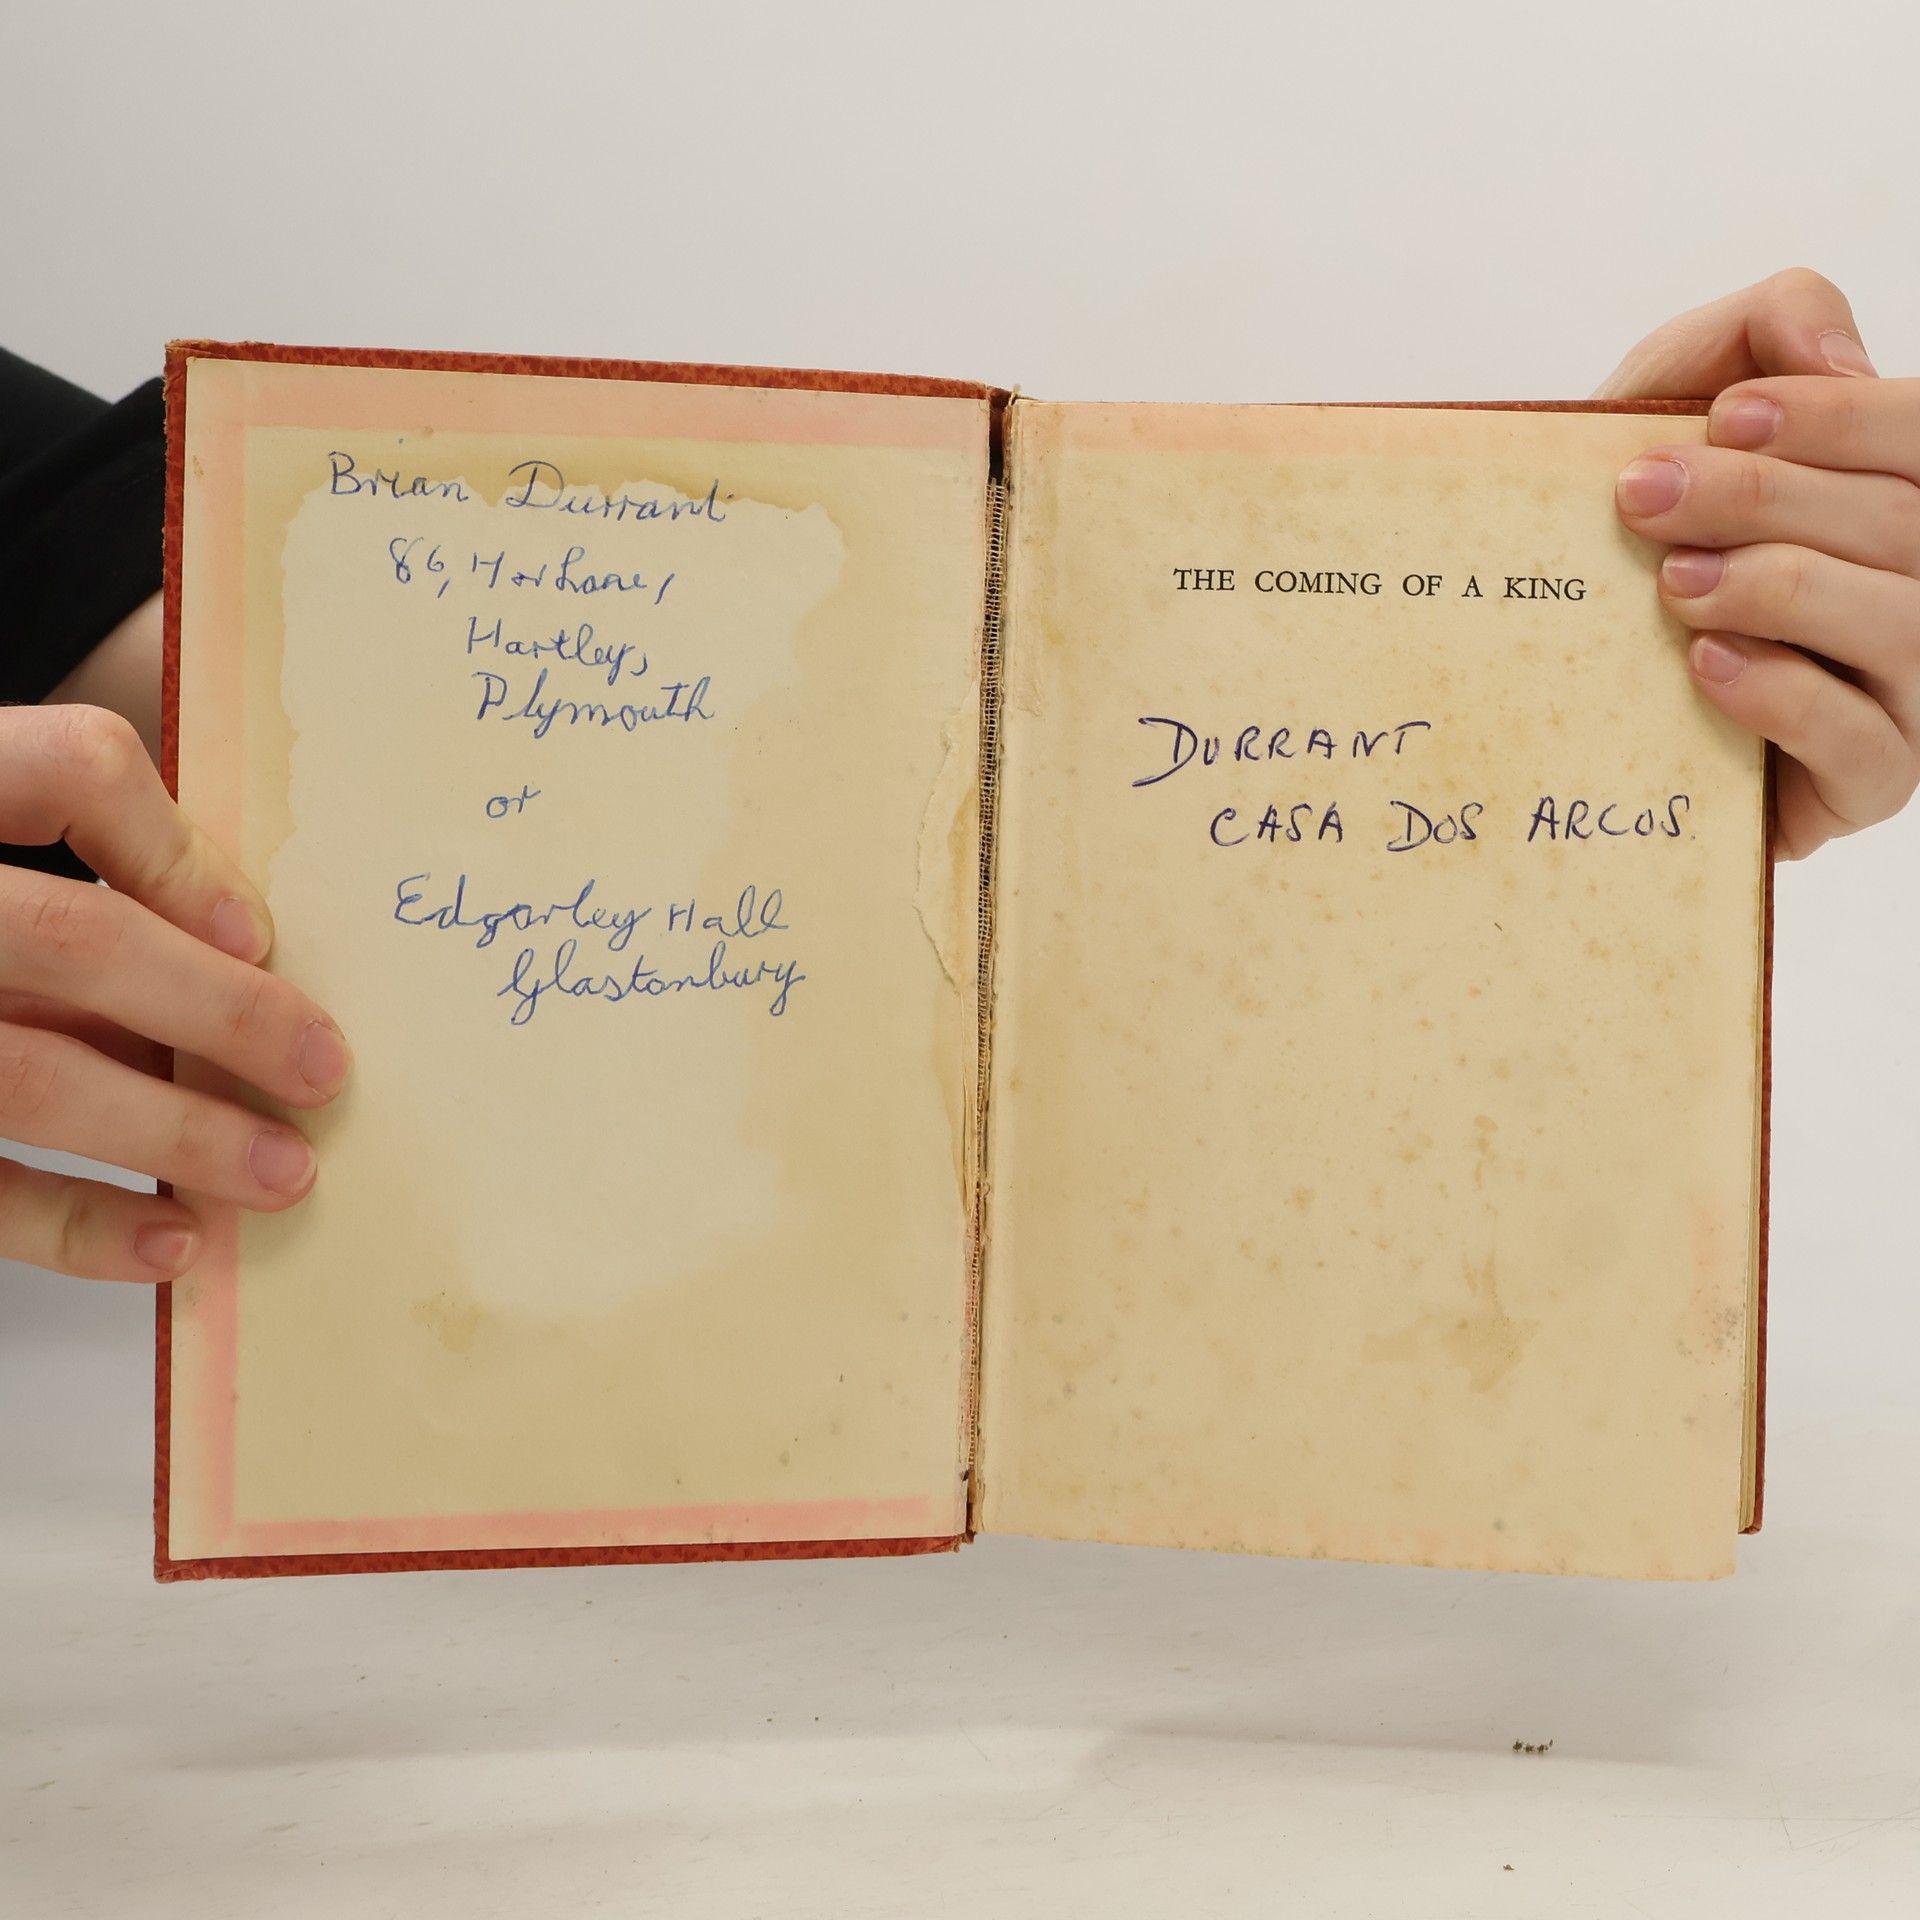 Brian Durrant
86, Hor Lane,
Hartley,
Plymouth
or
Edgarley Hall
Glastonbury
THE COMING OF A KING
DURRANT
CASA DOS ARCOS.